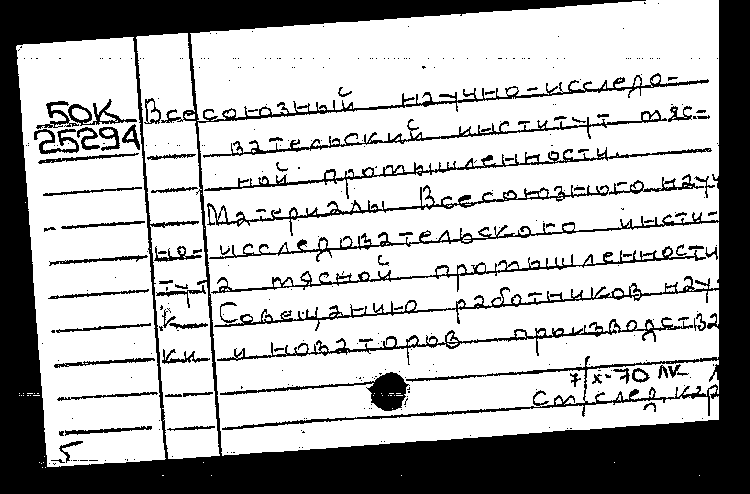 50К Всесоюзный научно-исследо-
25294 вательский институт мяс-
ной промышленности.
Материалы Всесоюзного науч
но-исследовательского инсти-
тута мясной промышленности
к Совещанию работников нау-
ки и новаторов производства
7/X-70
См. след. кар
5